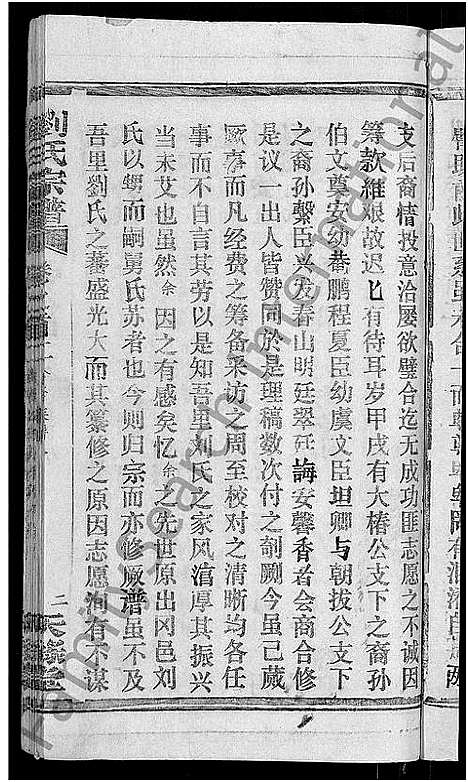 支后裔情投意洽屡欲璧合迄无成功匪志愿之不诚因
筹款维艰故迟迟有待耳岁甲戌有大椿公支下之裔孙
伯文奠安幼菴鹏程夏臣幼虞文臣坦卿与朝拔公支下
之裔孙繫臣兴发春山明廷翠廷诲安馨香者会商合修
是议一出人皆赞同於是理稿数次付之剞劂今虽已蒇
厥事而凡经费之筹备采访之周至校对之清晰均各任
事而不自言其劳以是知吾里刘氏之家风湻厚其振兴
当未艾也虽然余因之有感矣忆余之先世原出冈邑刘
氏以甥而嗣舅氏苏者也今则归宗而亦修厥谱虽不及
吾里劉氏之蕃盛光大而其纂修之原因志愿洵有不谋
劉氏宗譜
二
FamilySearch International